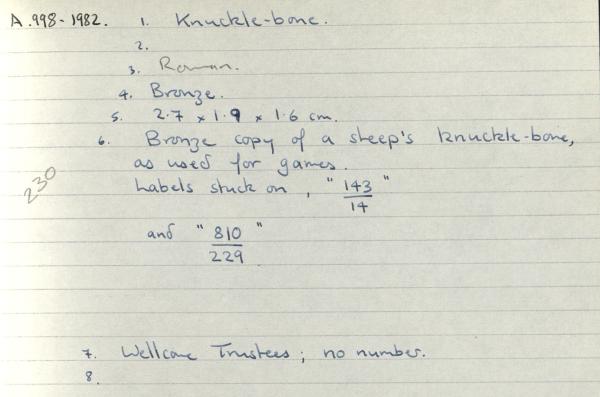 A.998-1982. 1. Knuckle-bone.
2.
3. Roman.
4. Bronze.
5. 2.7 x 1.9 x 1.6 cm.
6. Bronze copy of a sheep's knuckle-bone,
as used for games.
Labels stuck on, "143
14"
230
and "810
229"
7. Wellcome Trustees; no number.
8.